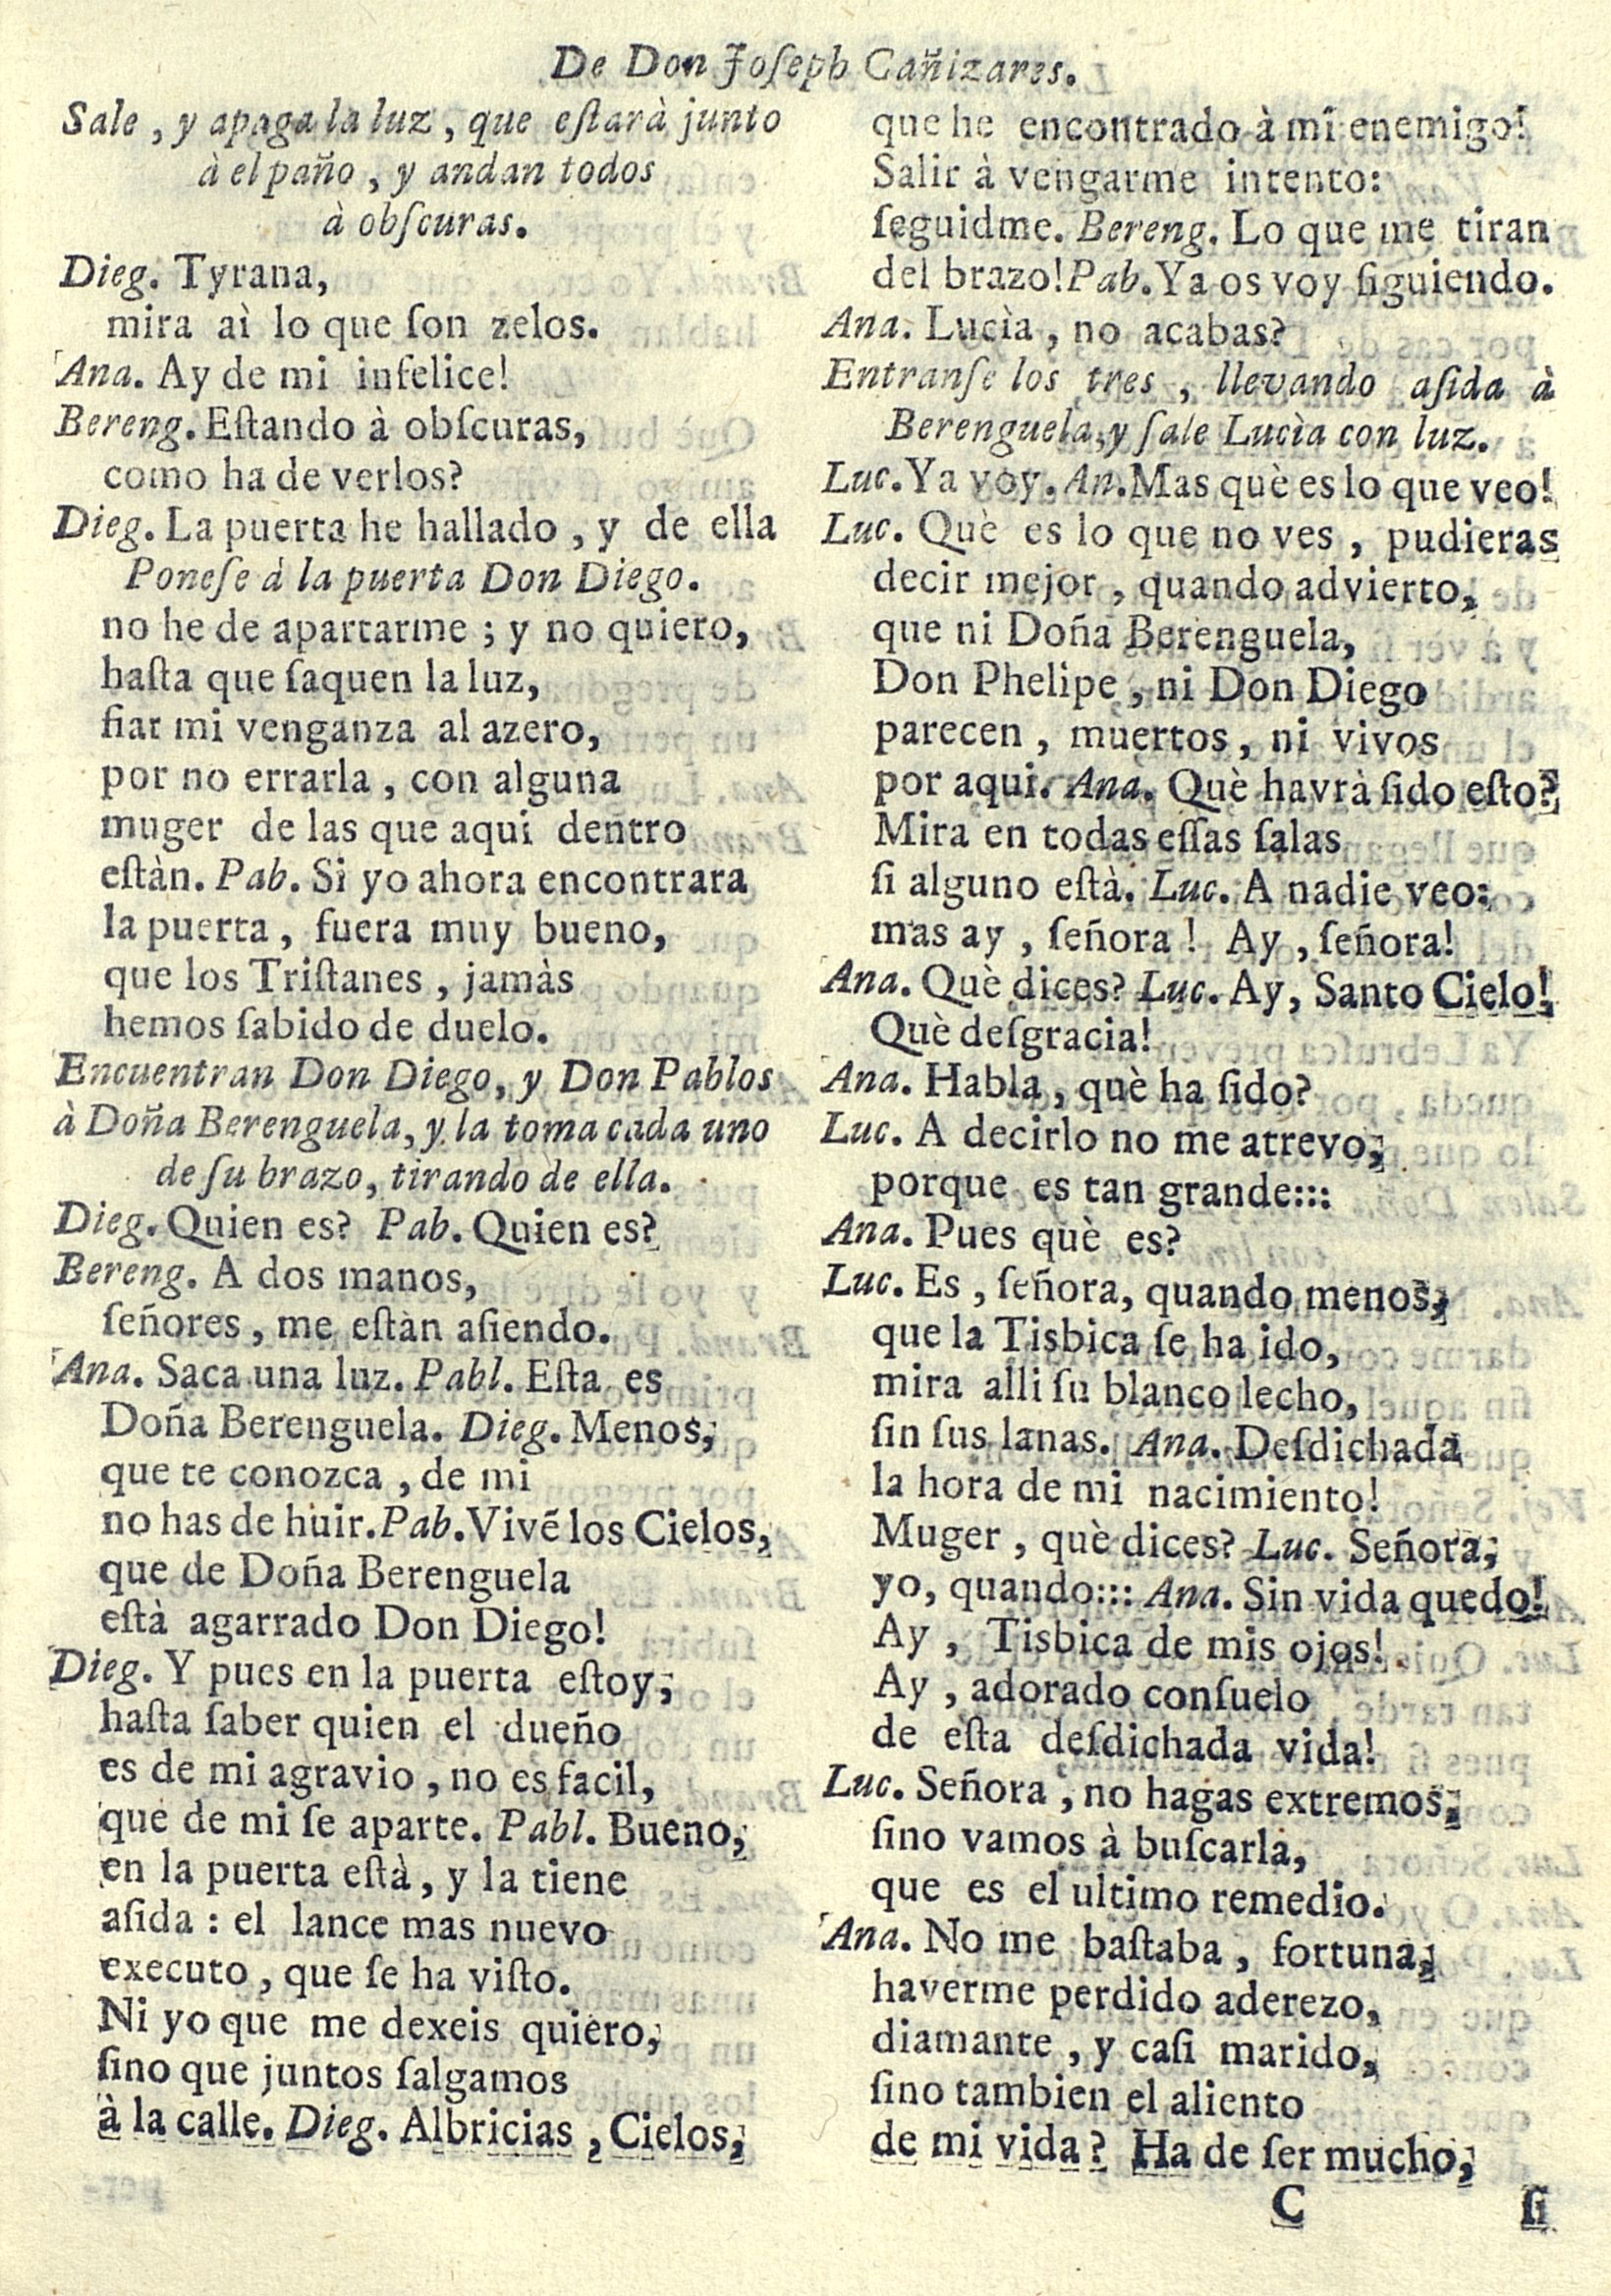 De Don Joſeph Cañizares.
Sale, y apaga la luz, que eſtarà junto
à el paño, y andan todos
à obſcuras.
Dieg. Tyrana,
mira aì lo que ſon zelos.
Ana. Ay de mi infelice!
Bereng. Eſtando à obſcuras,
como ha de verlos?
Dieg. La puerta he hallado, y de ella
Poneſe à la puerta Don Diego.
no he de apartarme; y no quiero,
haſta que ſaquen la luz,
fiar mi venganza al azero,
por no errarla, con alguna
muger de las que aqui dentro
eſtàn. Pab. Si yo ahora encontrara
la puerta, fuera muy bueno,
que los Triſtanes, jamàs
hemos ſabido de duelo.
Encuentran Don Diego, y Don Pablos
à Doña Berenguela, y la toma cada uno
de ſu brazo, tirando de ella.
Dieg. Quien es? Pab. Quien es?
Bereng. A dos manos,
ſeñores, me eſtàn aſiendo.
Ana. Saca una luz. Pabl. Eſta es
Doña Berenguela. Dieg. Menos,
que te conozca, de mi
no has de huir. Pab. Vivẽ los Cielos,
que de Doña Berenguela
eſtà agarrado Don Diego!
Dieg. Y pues en la puerta eſtoy,
haſta ſaber quien el dueño
es de mi agravio, no es facil,
que de mi ſe aparte. Pabl. Bueno,
en la puerta eſtà, y la tiene
aſida: el lance mas nuevo
executo, que ſe ha viſto.
Ni yo que me dexeis quiero,
ſino que juntos ſalgamos
à la calle. Dieg. Albricias, Cielos,
que he encontrado à mi enemigo!
Salir à vengarme intento:
ſeguidme. Bereng. Lo que me tiran
del brazo! Pab. Ya os voy ſiguiendo.
Ana. Lucìa, no acabas?
Entranſe los tres, llevando aſida à
Berenguela, y ſale Lucìa con luz.
Luc. Ya voy. An. Mas què es lo que veo!
Luc. Què es lo que no ves, pudieras
decir mejor, quando advierto,
que ni Doña Berenguela,
Don Phelipe, ni Don Diego
parecen, muertos, ni vivos
por aqui. Ana. Què havrà ſido eſto?
Mira en todas eſſas ſalas
ſi alguno eſtà. Luc. A nadie veo:
mas ay, ſeñora! Ay, ſeñora!
Ana. Què dices? Luc. Ay, Santo Cielo!
Què deſgracia!
Ana. Habla, què ha ſido?
Luc. A decirlo no me atrevo,
porque es tan grande:::
Ana. Pues què es?
Luc. Es, ſeñora, quando menos,
que la Tisbica ſe ha ido,
mira alli ſu blanco lecho,
ſin ſus lanas. Ana. Deſdichada
la hora de mi nacimiento!
Muger, què dices? Luc. Señora,
yo, quando::: Ana. Sin vida quedo!
Ay, Tisbica de mis ojos!
Ay, adorado conſuelo
de eſta deſdichada vida!
Luc. Señora, no hagas extremos,
ſino vamos à buſcarla,
que es el ultimo remedio.
Ana. No me baſtaba, fortuna,
haverme perdido aderezo,
diamante, y caſi marido,
ſino tambien el aliento
de mi vida? Ha de ſer mucho,
C ſi